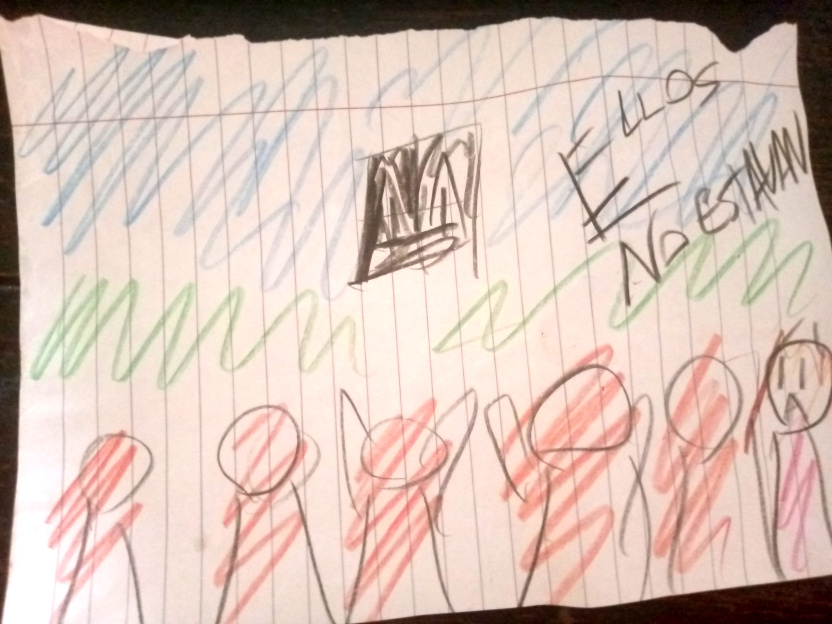 ELLOS
NO ESTAVAN